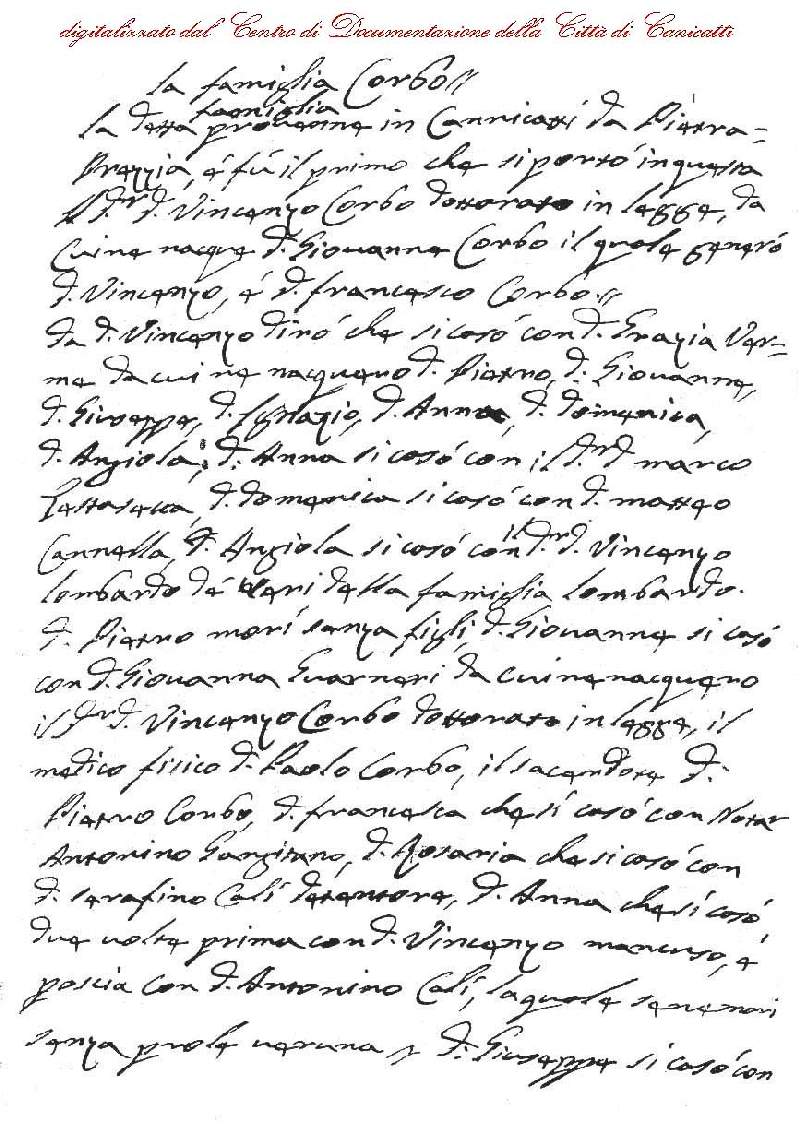 digitalizzato dal Centro di Documentazione della Città di Canicattì
la famiglia Corbo//
famiglia
La detta provenne in Cannicattì da Pietra=
Prezzia, é fù il primo che si portó in questa
il D.r D. Vincenzo Corbo dottorato in legge, da
Cui ne nacque D. Giovanne Corbo il quale generó
D. Vincenzo, é D. francesco Corbo//
da D. Vincenzo diró che si casó con D. Grazia Ver=
me da cui ne nacquero D. Pietro, D. Giovanne,
D. Giuseppe, D. Ignazio, D. Anna, D. Domenica,
D. Angiola; D. Anna si casó con il D.r D. marco
Testasecca, D. Domenica si casó con D. matteo
Cannella, D. Angiola si casó con il D.r D. Vincenzo
lombardo dé veri della famiglia lombardo.
D. Pietro morí senza figli, D. Giovanne si casó
con D. Giovanna Guarneri da cui ne nacquero
il D.r D. Vincenzo Corbo dottorato in legge, il
medico fisico D. Paolo Corbo, il sacerdote D.
Pietro Corbo, D. francesca che si casó con Notar
Antonino Gangitano, D. Rosaria che si casó con
D. serafino Calí detentore, D. Anna che si casó
due volte prima con D. Vincenzo mancuso, é
poscia con D. Antonino Calí, la quale se ne morí
senza prole veruna, D. Giuseppe si casó con